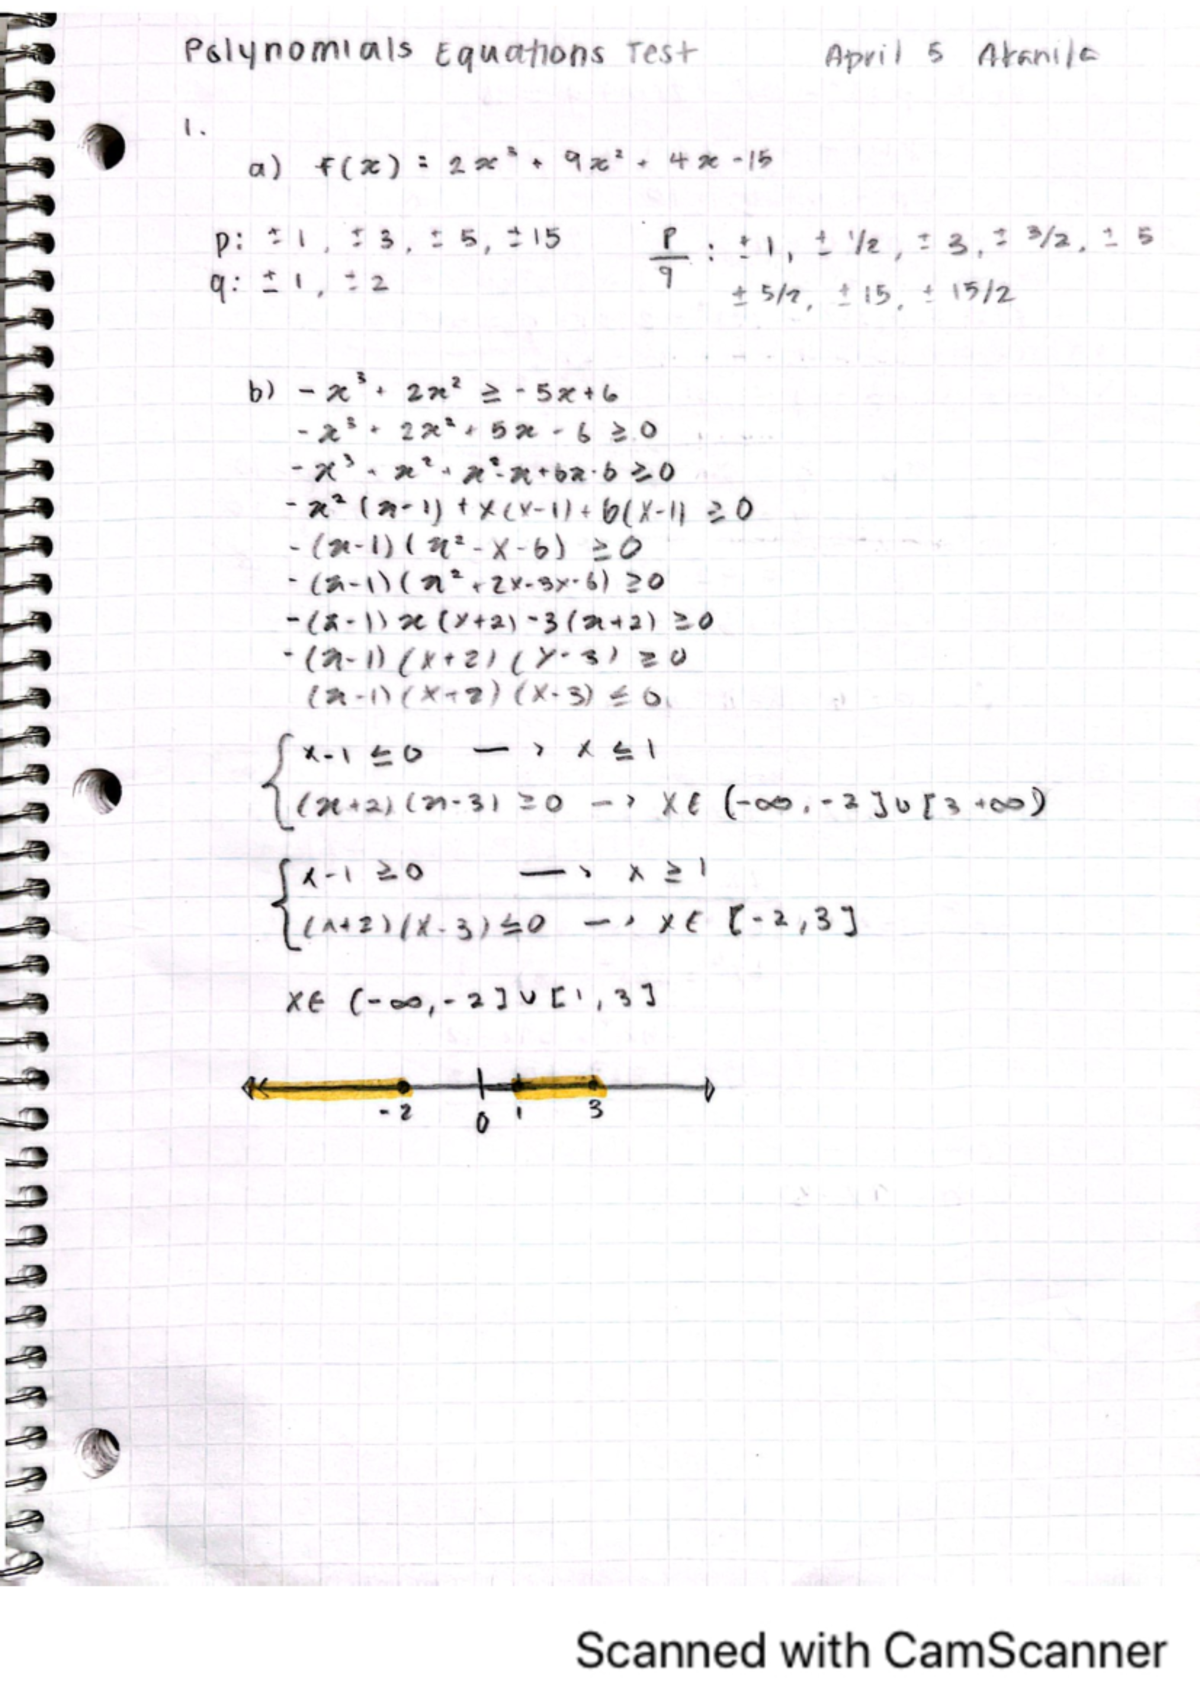 Polynomials Equations Test April 5 Akanila
1.
a) f(x) = 2x³ + 9x² + 4x - 15
p: ± 1, ± 3, ± 5, ± 15
q: ± 1, ± 2
p/q : ± 1, ± 1/2, ± 3, ± 3/2, ± 5
± 5/2, ± 15, ± 15/2
b) - x³ + 2x² ≥ - 5x + 6
- x³ + 2x² + 5x - 6 ≥ 0
- x³ + x² + x² - x + 6x - 6 ≥ 0
- x² (x-1) + x(x-1) + 6(x-1) ≥ 0
- (x-1) (x² - x - 6) ≥ 0
- (x-1) (x² + 2x - 3x - 6) ≥ 0
- (x-1) x (x+2) - 3 (x+2) ≥ 0
- (x-1) (x+2) (x-3) ≥ 0
(x-1) (x+2) (x-3) ≤ 0
x-1 ≤ 0 —> x ≤ 1
(x+2) (x-3) ≥ 0 —> x ∈ (-∞, -2] ∪ [3 +∞)
x-1 ≥ 0 —> x ≥ 1
(x+2) (x-3) ≤ 0 —> x ∈ [-2, 3]
x ∈ (-∞, -2] ∪ [1, 3]
-2 0 1 3
Scanned with CamScanner